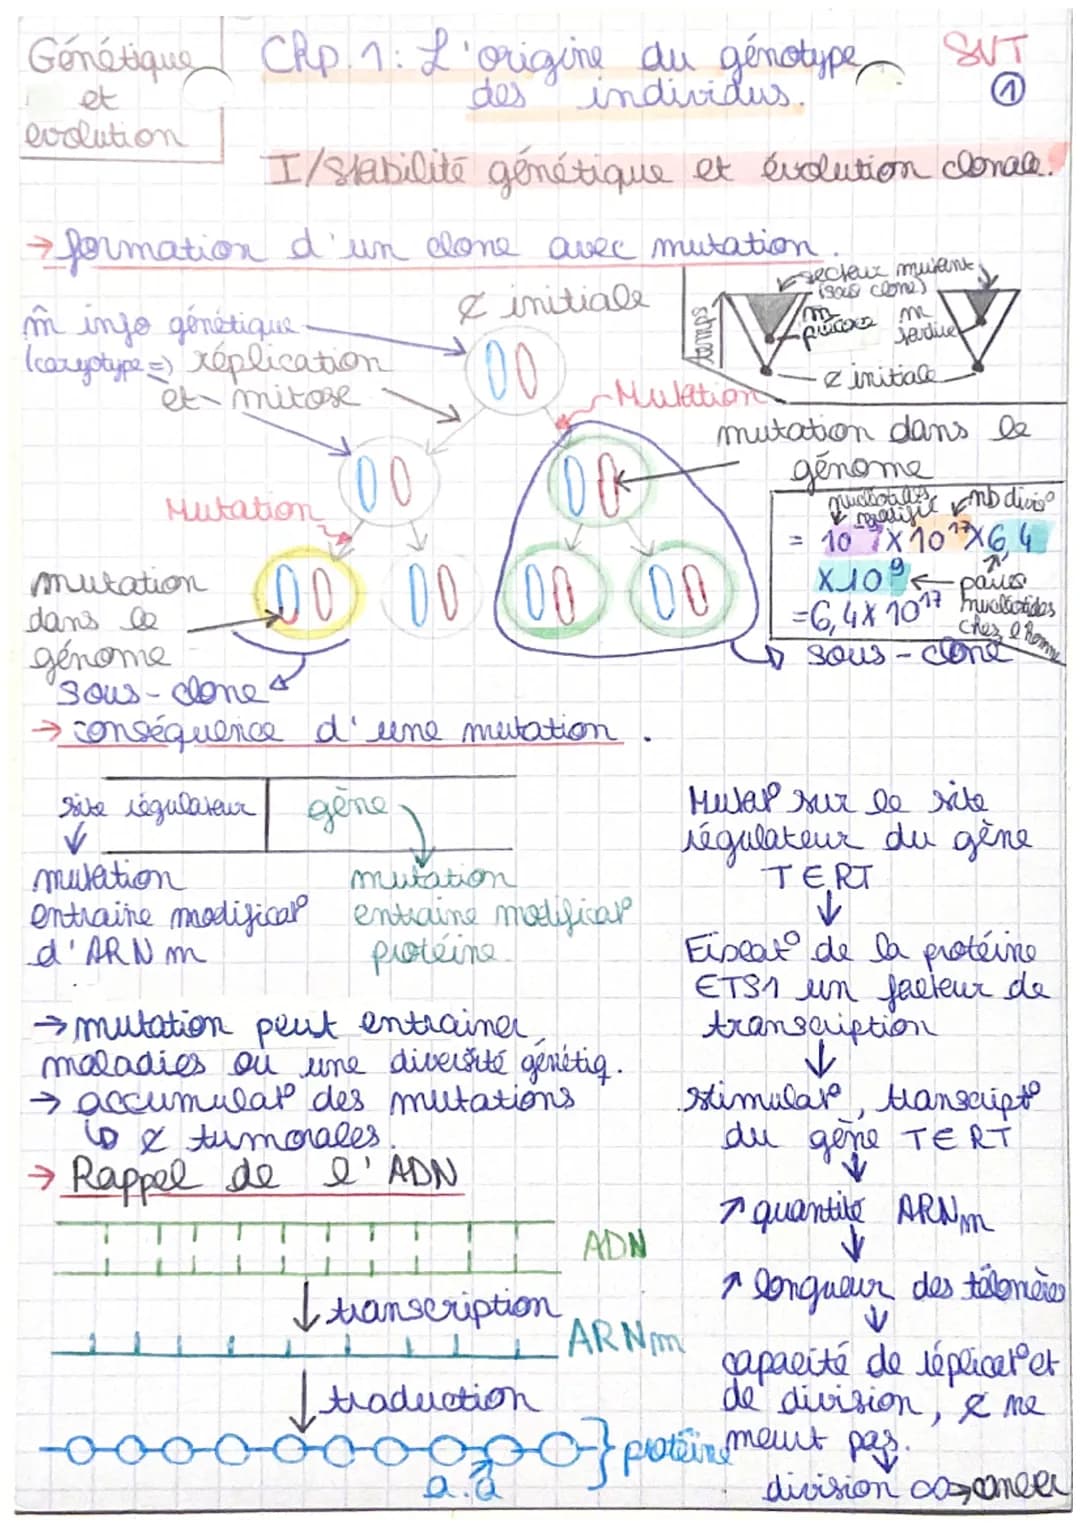 Génétique
et
evolution
Chp. 1: L'origine du génotype
des individus.
SVT
1
I/Stabilité génétique et évolution clonale.
→ formation d'un clone avec mutation.
¢ initiale
m̂ info génétique
(caryotype =) réplication
et mitose
Mutation
Mutation
mutation
dans le
génome
sous-clone
schéma
secteur mutant
(sous clone)
m précoce
m tardive
¢ initiale
mutation dans le
génome
nucléotides modifié
nb divis°
= 10⁻⁹ × 10¹⁷ × 6,4
× 10⁹ ← paires
nucléotides
chez l'homme
= 6,4 × 10¹⁷
sous-clone
→ conséquence d'une mutation.
site régulateur
gène
mutation
entraine modificat°
d'ARNm
mutation
entraine modificat°
protéine
→ mutation peut entrainer
maladies ou une diversité génétiq.
→ accumulat° des mutations
↳ ¢ tumorales.
→ Rappel de l'ADN
ADN
↓ transcription
ARNm
↓ traduction
protéine
a.a
Mutat° sur le site
régulateur du gène
TERT
↓
Fixat° de la protéine
ETS1 un facteur de
transcription
↓
stimulat°, transcript°
du gène TERT
↓
↗ quantité ARNm
↓
↗ longueur des télomères
↓
capacité de réplicat° et
de division, ¢ ne
meurt pas.
↓
division ∞ → cancer